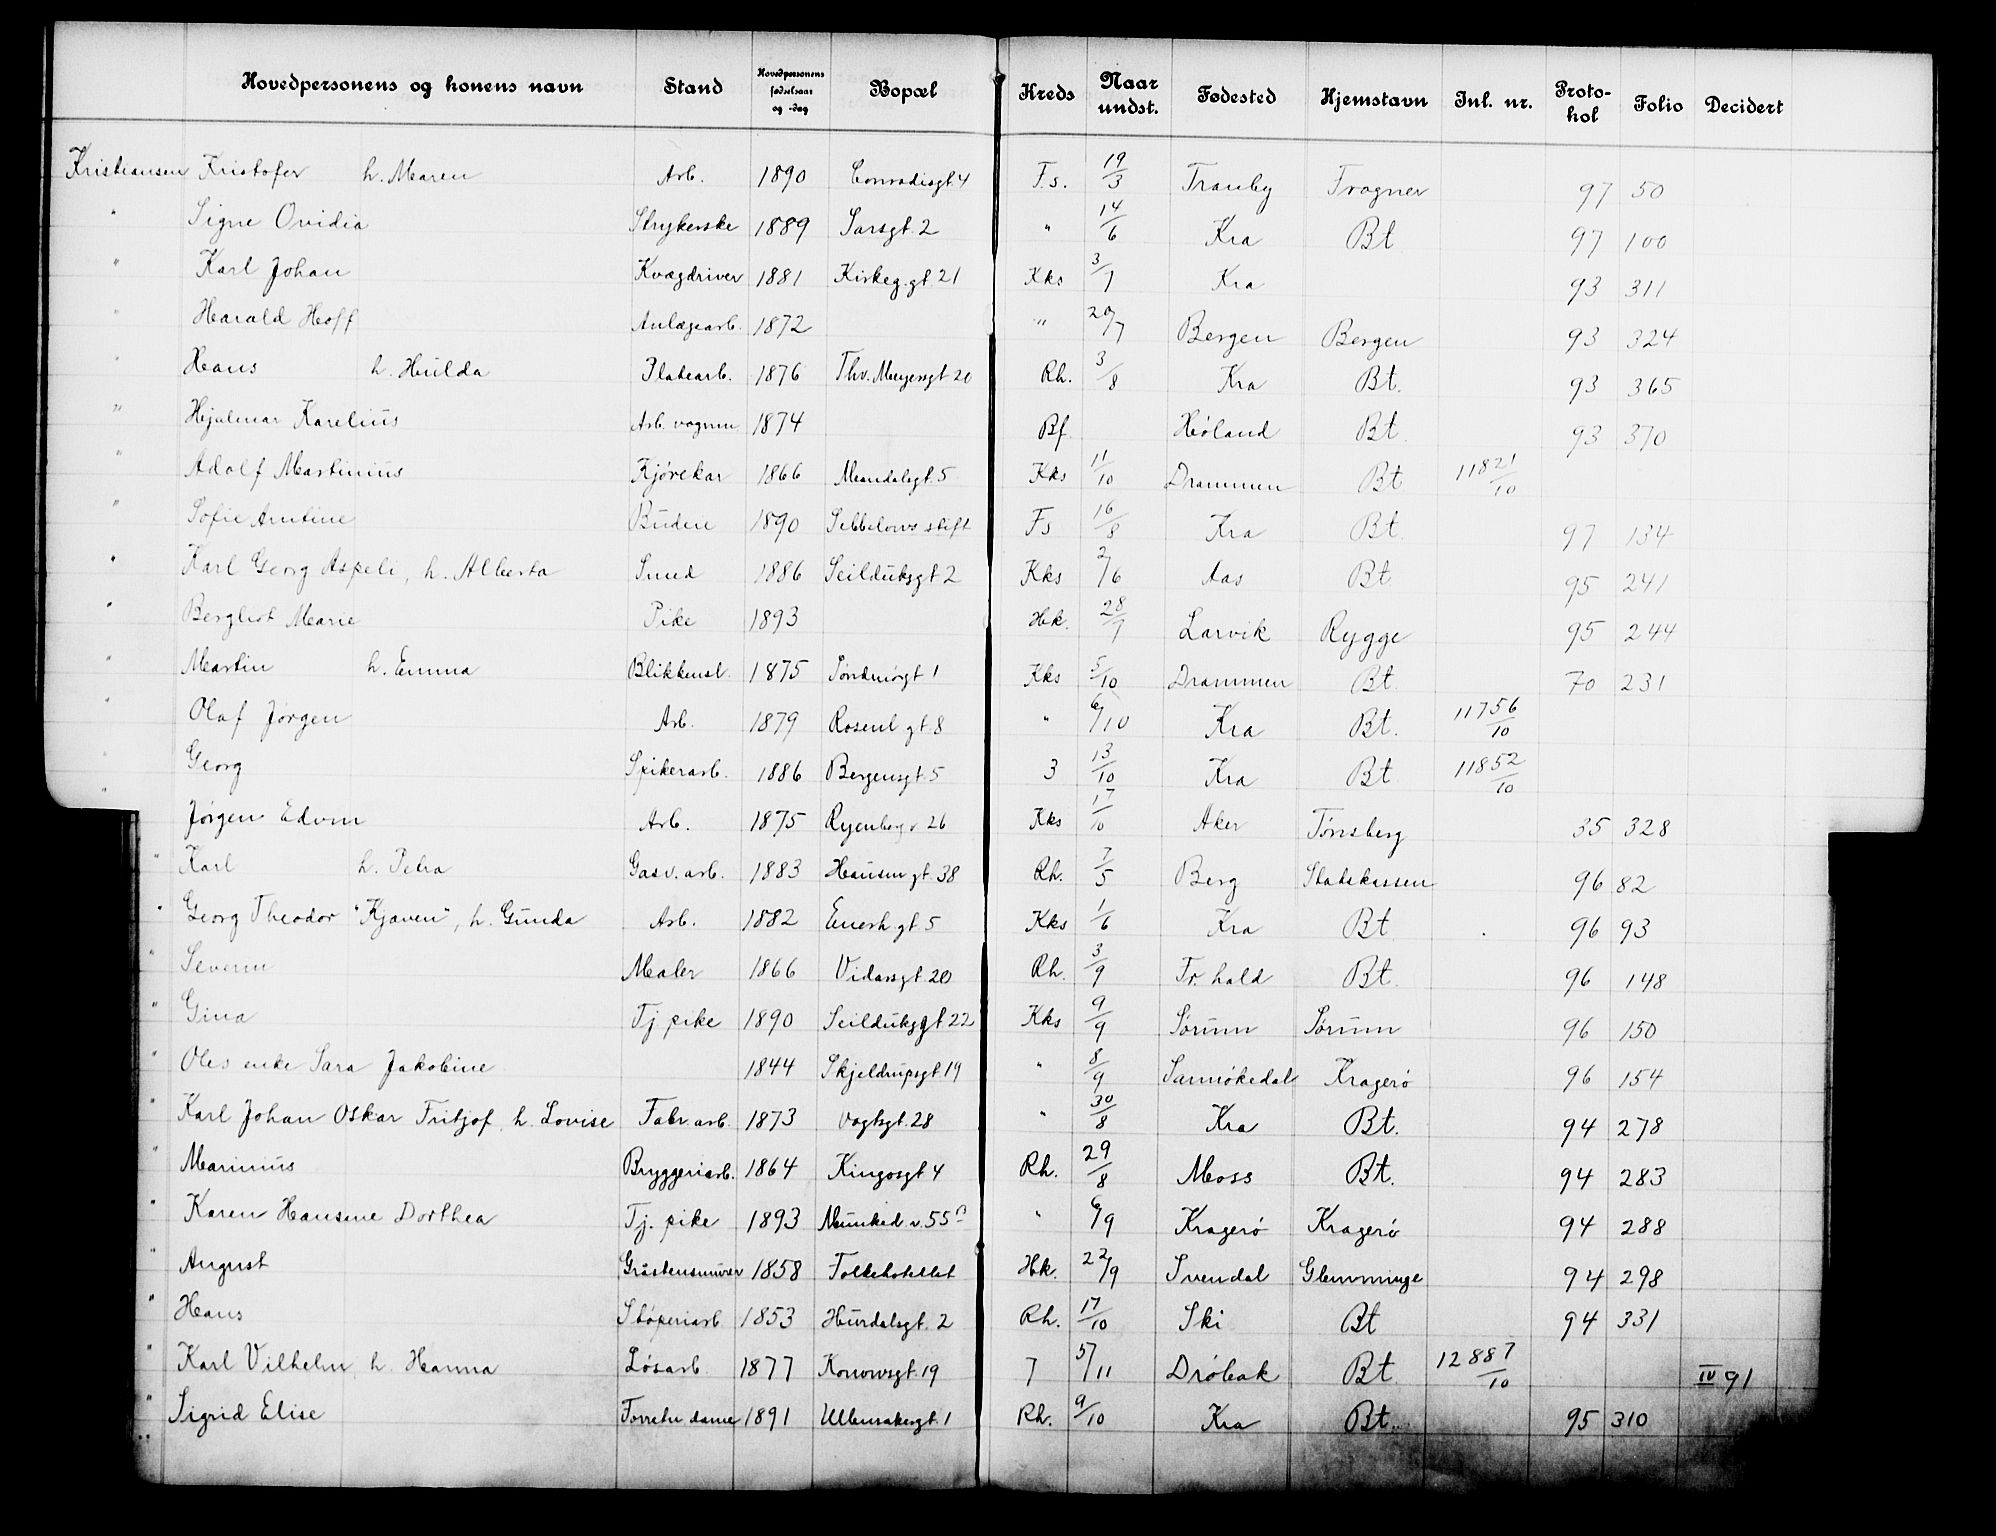 Hovedpersonens og konens navn Stand Hovedpersonens fødselsaar og -dag Bopæl Kreds Naar undst. Fødested Hjemstavn Inl. nr. Protokol Folio Decidert
Kristiansen Kristofer h. Maren Arb. 1890 Conradisgt 4 F.s. 19/3 Tranby Frogner 97 50
" Signe Ovidia Strykerske 1889 Sarsgt. 2 " 14/6 Kra Bt 97 100
" Karl Johan Kvægdriver 1881 Kirkeg.gt 21 Kks 3/7 Kra 93 311
" Harald Hoff Anlægsarb. 1872 " 20/7 Bergen Bergen 93 324
" Hans h. Hulda Platearb. 1876 Thv. Meyersgt 20 Rh. 3/8 Kra Bt. 93 365
" Hjalmar Karelius Arb. vognm 1874 Bf. Høland Bt. 93 370
" Adolf Martinius Kjørekar 1866 Mandalsgt. 5 Kks 11/10 Drammen Bt 11821/10
" Sofie Amtine Budeie 1890 Sebbelows stift Fs 16/8 Kra Bt. 97 134
" Karl Georg Aspeli, h. Alberta Smed 1886 Seilduksgt 2 Kks 2/6 Aas Bt. 95 241
" Bergliot Marie Pike 1893 Hk. 28/7 Larvik Rygge 95 244
" Martin h. Emma Blikkensl. 1875 Søndmørgt 1 Kks 5/10 Drammen Bt. 70 231
" Olaf Jørgen Arb. 1879 Rosenl gt. 8 " 6/10 Kra Bt. 11756/10
" Georg Spikerarb. 1886 Bergensgt. 5 3 13/10 Kra Bt 11852/10
" Jørgen Edvin Arb. 1875 Ryenberg v 26 Kks 17/10 Aker Tønsberg 35 328
" Karl h. Petra Gasv. arb. 1883 Hausm gt. 38 Rh. 7/5 Berg Statskassen 96 82
" Georg Theodor "Kjaven", h. Gunda Arb. 1882 Enerh gt. 5 Kks 1/6 Kra Bt 96 93
" Severin Maler 1866 Vidarsgt. 20 Rh. 3/9 Fr. hald Bt. 96 148
" Gina Tj. pike 1890 Seilduksgt. 22 Kks 9/9 Sørum Sørum 96 150
" Oles enke Sara Jakobine 1844 Skjeldrupsgt 19 " 8/9 Sannøkedal Kragerø 96 154
" Karl Johan Oskar Fritjof, h. Lovise Fabr. arb. 1873 Vogtsgt. 28 " 30/8 Kra Bt. 94 278
" Marinius Bryggeriarb. 1864 Kingosgt 4 Rh. 29/8 Moss Bt. 94 283
" Karen Hansine Dorthea Tj. pike 1893 Munked v. 55 B " 6/9 Kragerø Kragerø 94 288
" August Gråstensmurer 1858 Folkehotellet Hk. 22/9 Svendal Glemminge 94 298
" Hans Støperiarb 1853 Hurdalsgt. 2 Rh. 17/10 Ski Bt 94 331
" Karl Vilhelm, h. Hanna Løsarb. 1877 Konowsgt. 19 7 5/11 Drøbak Bt. 12887/10 IV 91
" Sigrid Elise Forretn dame 1891 Ullensakergt. 1 Rh. 9/10 Kra Bt. 95 310